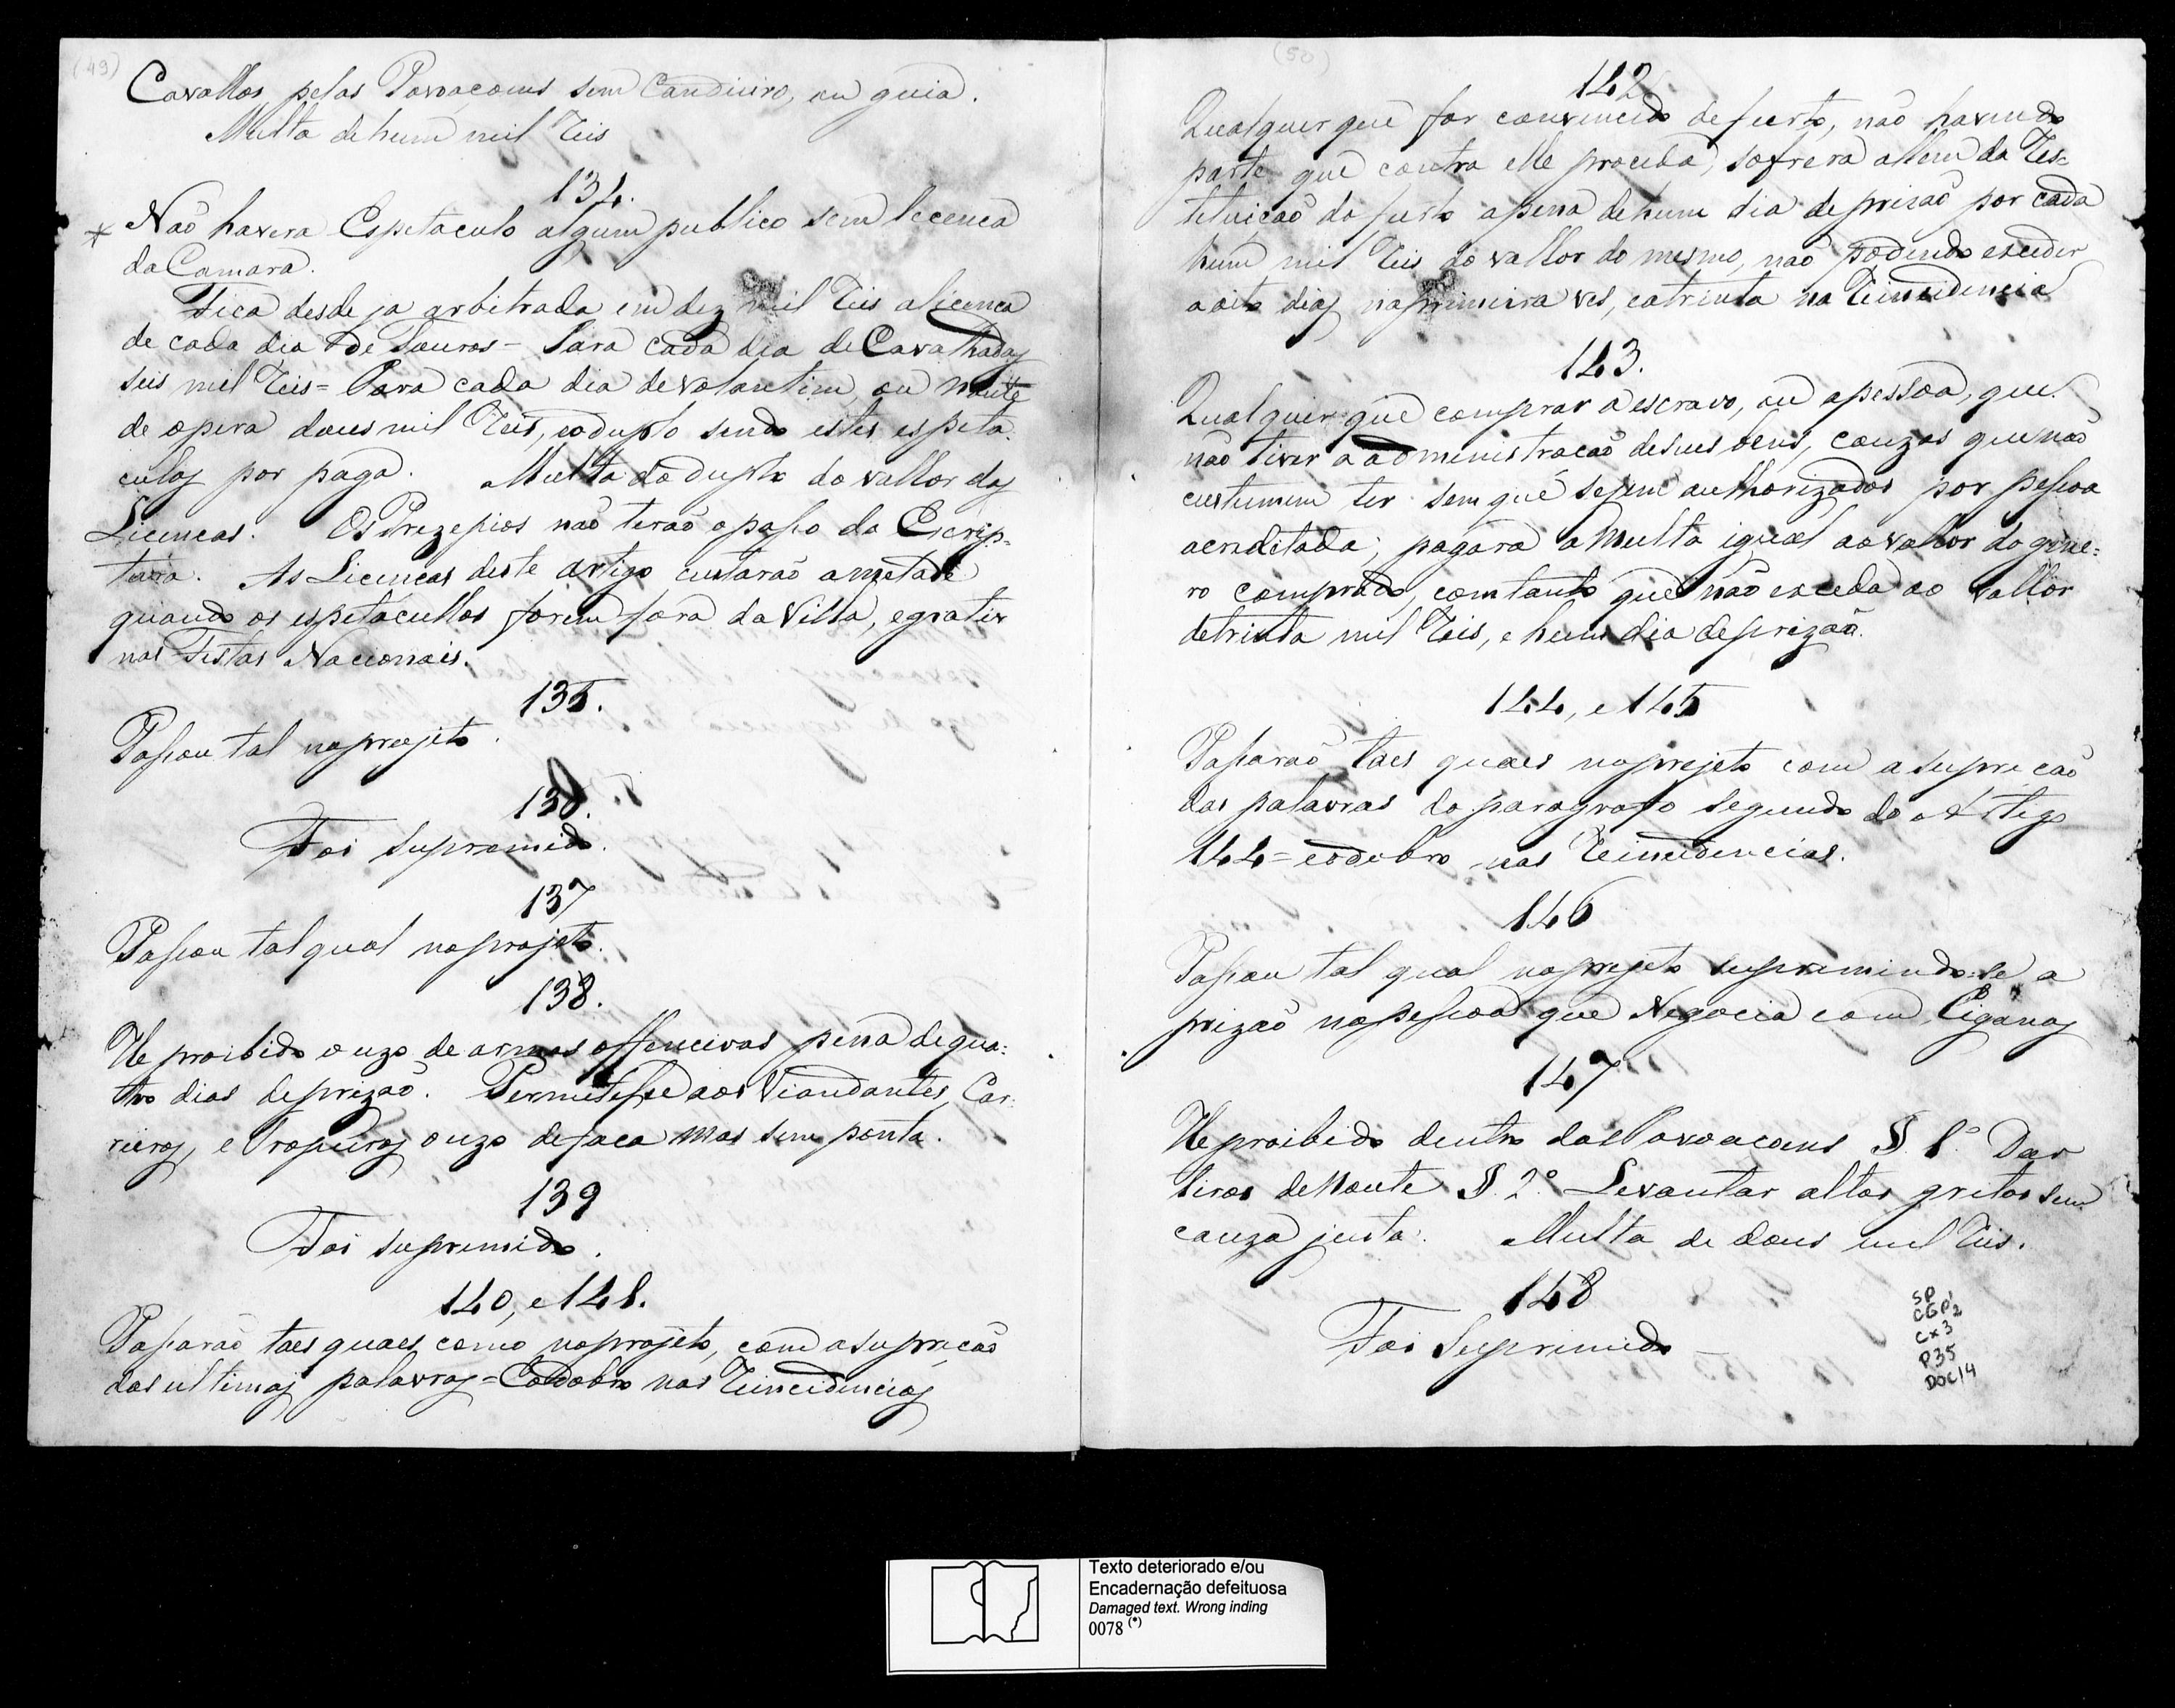 (49)
Cavallos pelas Povoacoens sem Candieiro, ou guia.
Multa de hum mil Reis
134.
Naõ havera Espetaculo algum publico sem licenca
da Camara.
Fica desde ja arbitrada em dez mil Reis a licenca
de cada dia de Touros - Para cada dia de Cavalhadas
seis mil Reis = Para cada dia de volantim, ou noute
de opera dous mil Reis, e o duplo sendo estes espeta-
culos por paga. Multa do duplo do vallor das
Licencas. Os Prezepios naõ teraõ o passo da Escrip-
tura. As Licencas deste artigo custaraõ ametade
quando os espetacullos forem fora da Villa, e gratis
nas Festas Nacionais.
135.
Passou tal no projeto.
136.
Foi supremido.
137
Passou tal qual no projeto.
138.
He proibido o uzo de armas offencivas pena de qua-
tro dias de prizaõ. Permitesse aos Viandantes, Car-
reiros, e Tropeiros o uzo de faca mas sem ponta.
139
Foi suprimido.
140, e 141.
Passaraõ taes quaes como no projeto, com a supreçaõ
das ultimas palavras = E o dobro nas Reincidencias
(50)
142
Qualquer que for convencido de furto, naõ havendo
parte que contra elle proceda, sofrera allem da Res-
tetuiçaõ do furto a pena de hum dia de prizaõ por cada
hum mil Reis do vallor do mesmo, naõ podendo exceder
a oito dias na primeira ves, e a trinta na Reincidencia
143.
Qualquer que comprar a escravo, ou a pessoa, que
naõ tiver a administracaõ de sues bens, couzas que naõ
custumem ter sem que sejem authorizados por pessoa
acreditada; pagara a Multa igual ao vallor do gene-
ro comprado, com tanto que naõ exceda ao vallor
de trinta mil Reis, e hum dia de prizaõ.
144, e 145
Passaraõ taes quaes no projeto com a supreçaõ
das palavras do paragrafo segundo do Artigo
144 = e o dobro nas Reincidencias.
146
Passou tal qual no projeto supremindo-se a
prizaõ na pessoa que Negocia com Ciganos
147
He proibido dentro das Povoacoens §. 1.º Dar
tiros de Noute §. 2.º Levantar altos gritos sem
cauza justa. Multa de dous mil Reis.
148
Foi Suprimido
SP
CGP1
2
Cx3
P35
DOC14
Texto deteriorado e/ou
Encadernação defeituosa
Damaged text. Wrong inding
0078 (*)